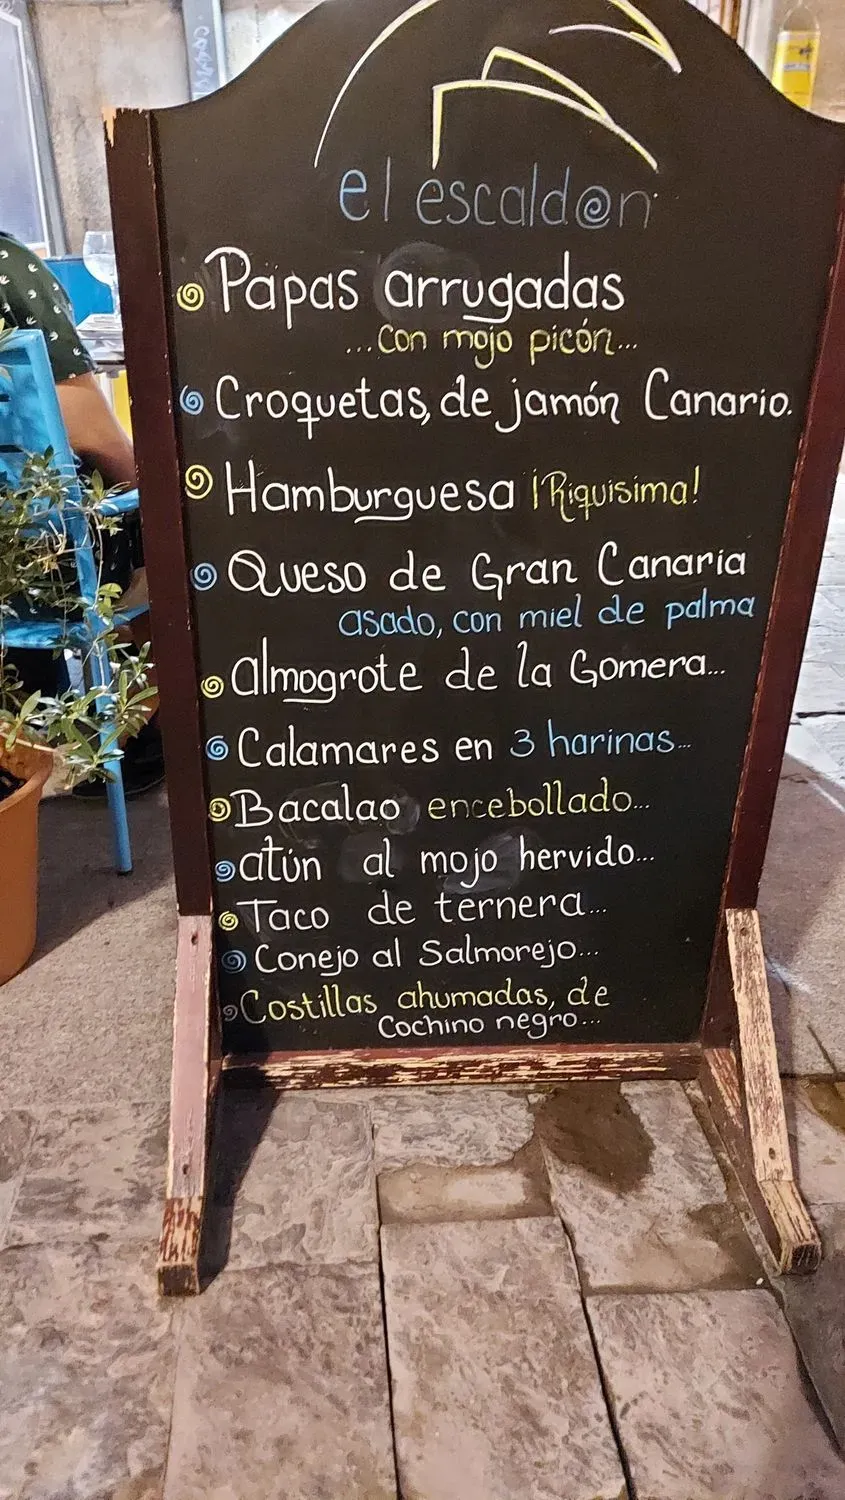 el escald@n
Papas arrugadas
...con mojo picón...
Croquetas, de jamón Canario.
Hamburguesa ¡Riquisima!
Queso de Gran Canaria
asado, con miel de palma
almogrote de la Gomera...
Calamares en 3 harinas...
Bacalao encebollado...
atún al mojo hervido...
Taco de ternera...
Conejo al Salmorejo...
Costillas ahumadas, de
Cochino negro...